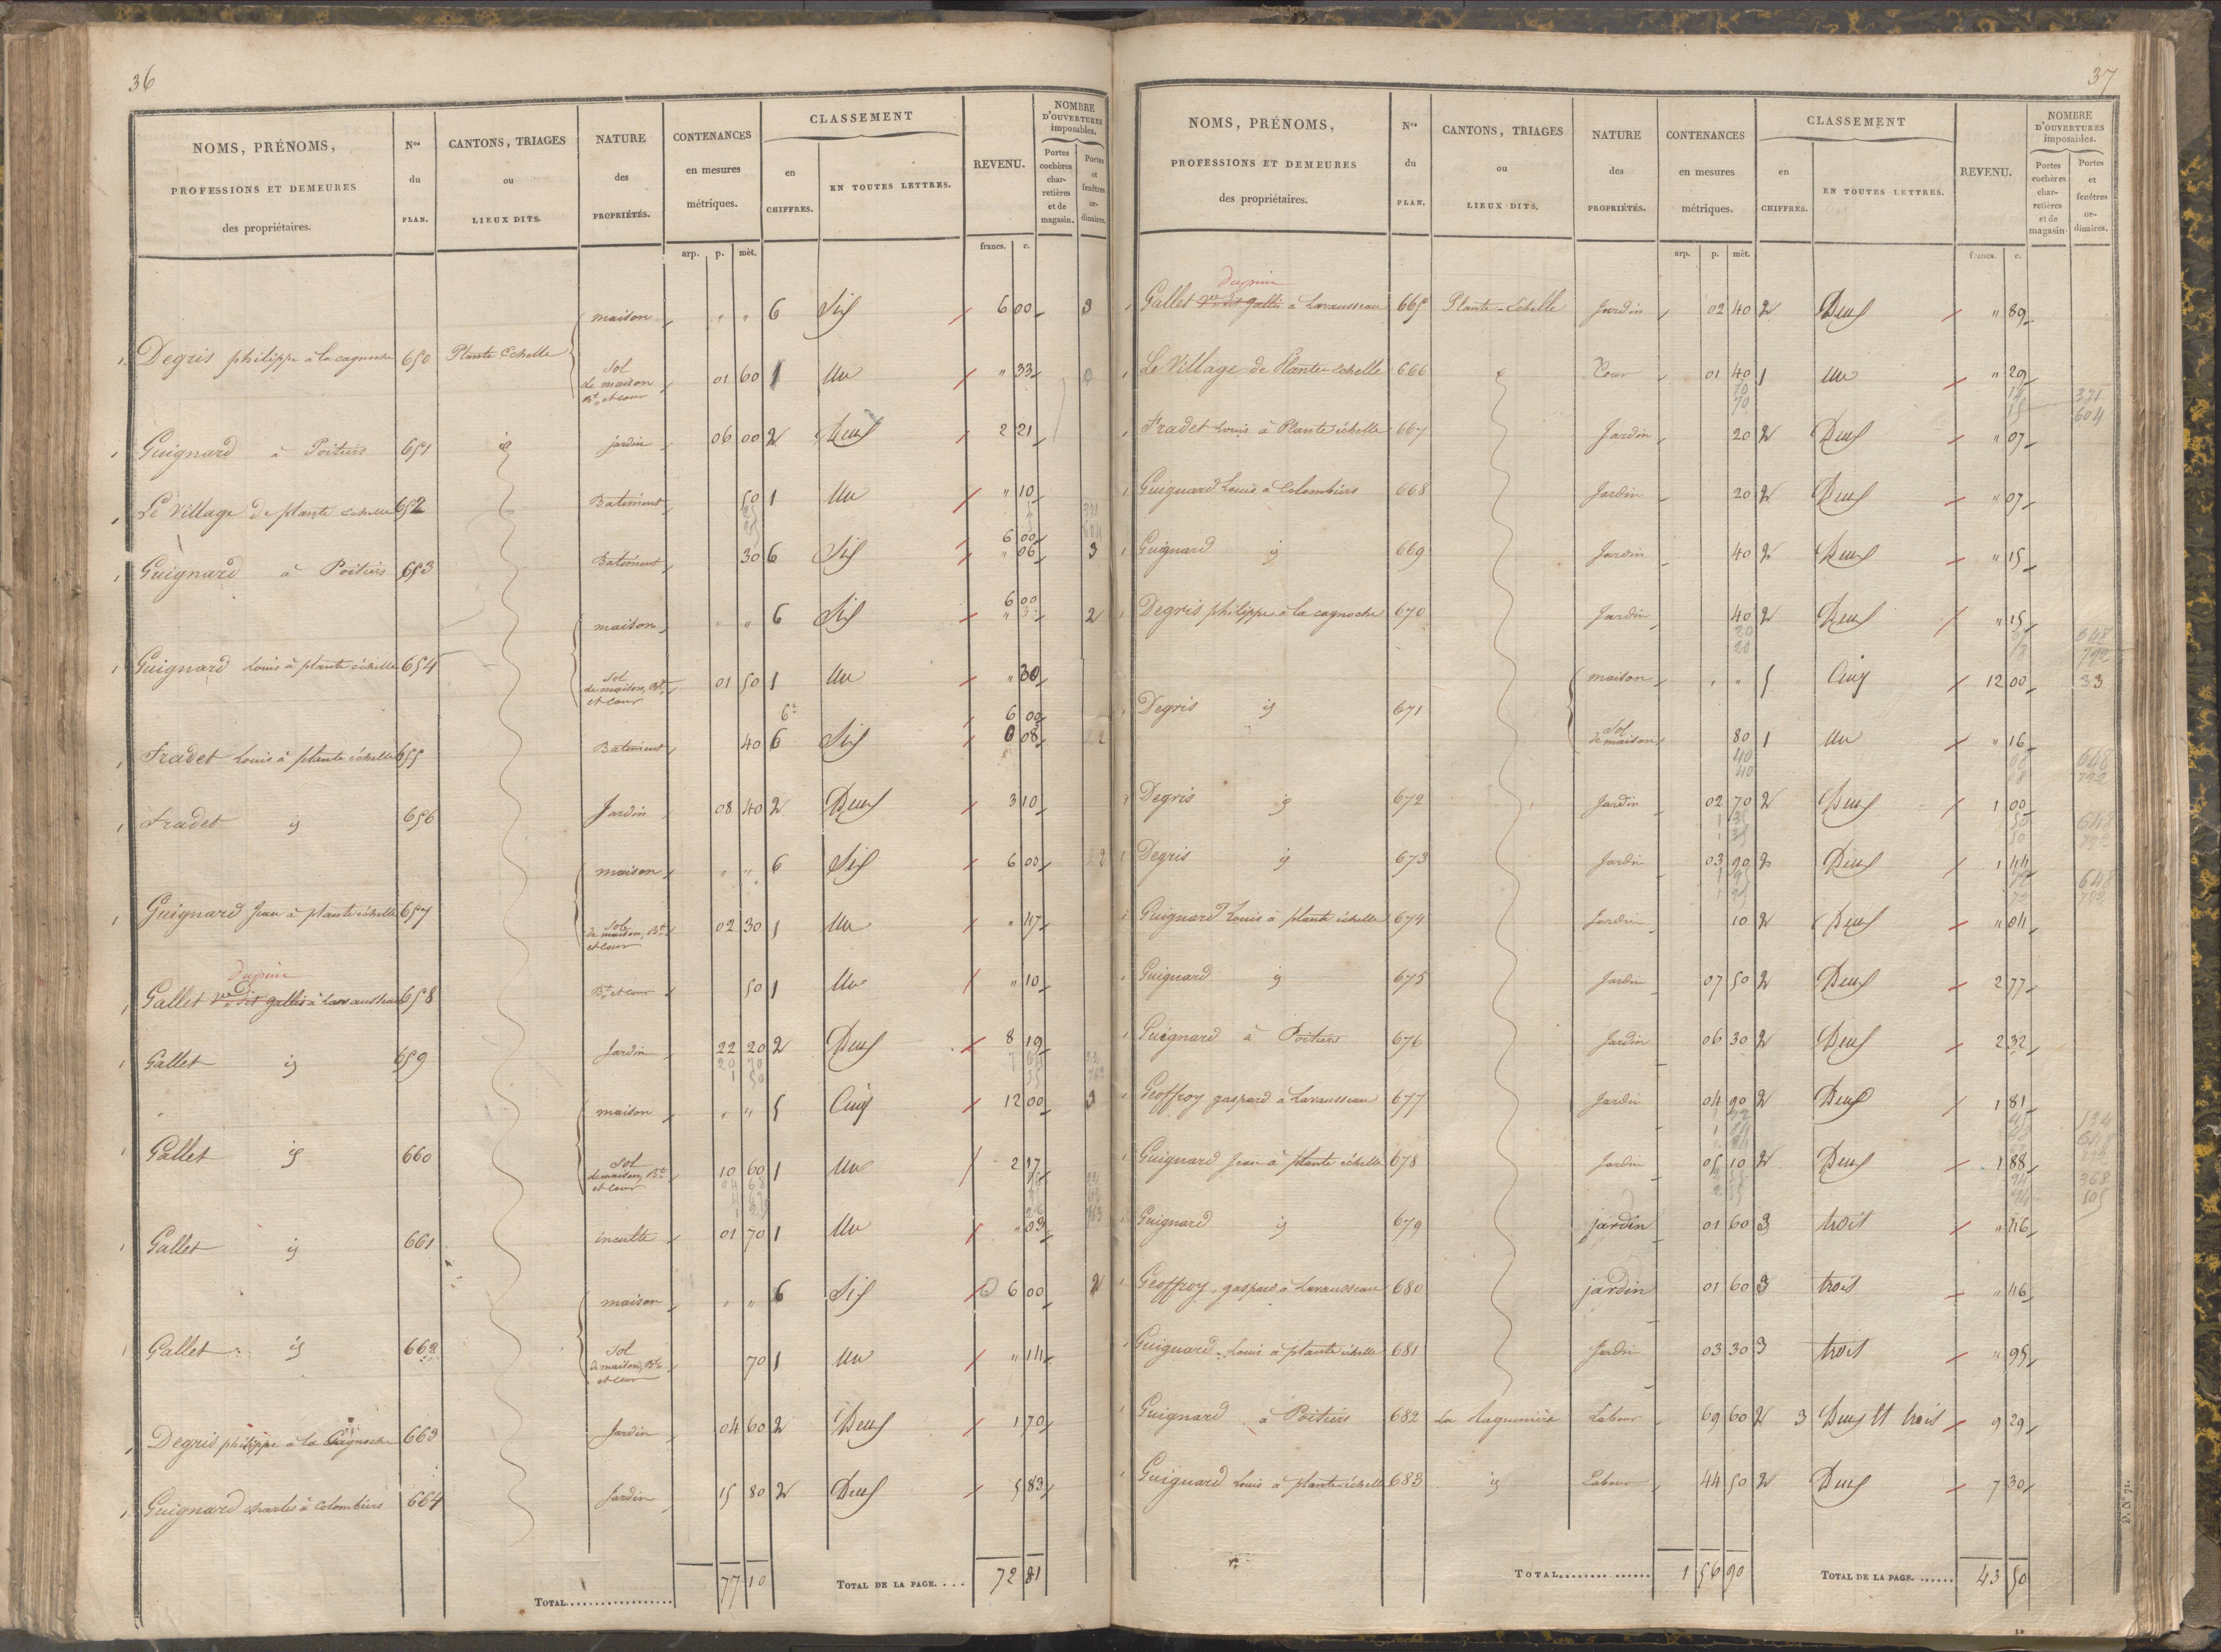 36
NOMS, PRÉNOMS, PROFESSIONS ET DEMEURES des propriétaires. Nos du PLAN. CANTONS, TRIAGES ou LIEUX DITS. NATURE des PROPRIÉTÉS. CONTENANCES en mesures métriques. CLASSEMENT en CHIFFRES. EN TOUTES LETTRES. REVENU. NOMBRE D'OUVERTURES imposables. Portes cochères charretières et de magasin. Portes et fenêtres ordinaires.
arp. p. mèt. francs. c.
maison " " 6 Six 6 00 3
Degris philippe à la cagnoche 650 Plante Echelle
Sol de maison Bt et cour 01 60 1 Un " 33
Guignard à Poitiers 651 id jardin 06 00 2 Deux 2 21
Le Village de plante echelle 652 Batiment 50 1 Un " 10
25
25
371
604
6 00
Guignard à Poitiers 653 Batiment 30 6 Six " 06 3
6 00
maison " " 6 Six 2
Guignard Louis à plante échelle 654
Sol de maison, Bt et cour 01 50 1 Un " 30
6 00
Fradet Louis à plante échelle 655 Batiment 40 6 Six 0 08
Fradet id 656 Jardin 08 40 2 Deux 3 10
maison " " 6 Six 6 00 2
Guignard Jean à plante échelle 657
Sol de maison, Bt et cour 02 30 1 Un " 47
dupuis
Gallet Ve dit gallis à Lavausseau 658 Bt et cour 50 1 Un " 10
Gallet id 659 Jardin 22 20 2 Deux 8 19
20 70
1 50
maison " " 5 Cinq 12 00 3
Gallet id 660
Sol de maison, Bt et cour 10 60 1 Un 2 17
Gallet id 661 inculte 01 70 1 Un " 03
maison " " 6 Six 6 00 2
Gallet id 662
Sol de maison, Bt et cour 70 1 Un " 14
Degris philippe à la Cagnoche 663 Jardin 04 60 2 Deux 1 70
Guignard charles à Colombiers 664 Jardin 15 80 2 Deux 5 83
TOTAL 77 10 TOTAL DE LA PAGE 72 81
37
NOMS, PRÉNOMS, PROFESSIONS ET DEMEURES des propriétaires. Nos du PLAN. CANTONS, TRIAGES ou LIEUX DITS. NATURE des PROPRIÉTÉS. CONTENANCES en mesures métriques. CLASSEMENT en CHIFFRES. EN TOUTES LETTRES. REVENU. NOMBRE D'OUVERTURES imposables. Portes cochères charretières et de magasin. Portes et fenêtres ordinaires.
arp. p. mèt. francs. c.
dupuis
Gallet Ve dit gallis à Lavausseau 665 Plante-Echelle Jardin 02 40 2 Deux " 89
Le Village de Plante-échelle 666 id Cour 01 40 1 Un " 29
70 14 371
70 15 604
Fradet Louis à Plante échelle 667 Jardin 20 2 Deux " 07
Guignard Louis à Colombiers 668 Jardin 20 2 Deux " 07
Guignard id 669 Jardin 40 2 Deux " 15
Degris philippe à la cagnoche 670 Jardin 40 2 Deux " 15
20 648
20 792
maison " " 5 Cinq 12 00 33
Degris id 671
Sol de maison 80 1 Un " 16
40 08 648
40 08 792
Degris id 672 Jardin 02 70 2 Deux 1 00
1 35 50 648
1 35 50 792
Degris id 673 Jardin 03 90 2 Deux 1 44
1 95 72 648
1 95 72 792
Guignard Louis à plante échelle 674 Jardin 10 2 Deux " 04
Guignard id 675 Jardin 07 50 2 Deux 2 77
Guignard à Poitiers 676 Jardin 06 30 2 Deux 2 32
Geoffroy gaspard à Lavausseau 677 Jardin 04 90 2 Deux 1 81
Guignard Jean à plante échelle 678 Jardin 05 10 2 Deux 1 88
2 55 94 368
2 55 94 505
Guignard id 679 jardin 01 60 3 trois " 46
Geoffroy gaspard à Lavausseau 680 jardin 01 60 3 trois " 46
Guignard Louis à plante échelle 681 Jardin 03 30 3 trois " 95
Guignard à Poitiers 682 Labour 69 60 2 3 Deux et trois 9 29
Guignard Louis à plante échelle 683 id Labour 44 50 2 Deux 7 30
TOTAL 1 56 90 TOTAL DE LA PAGE 43 50